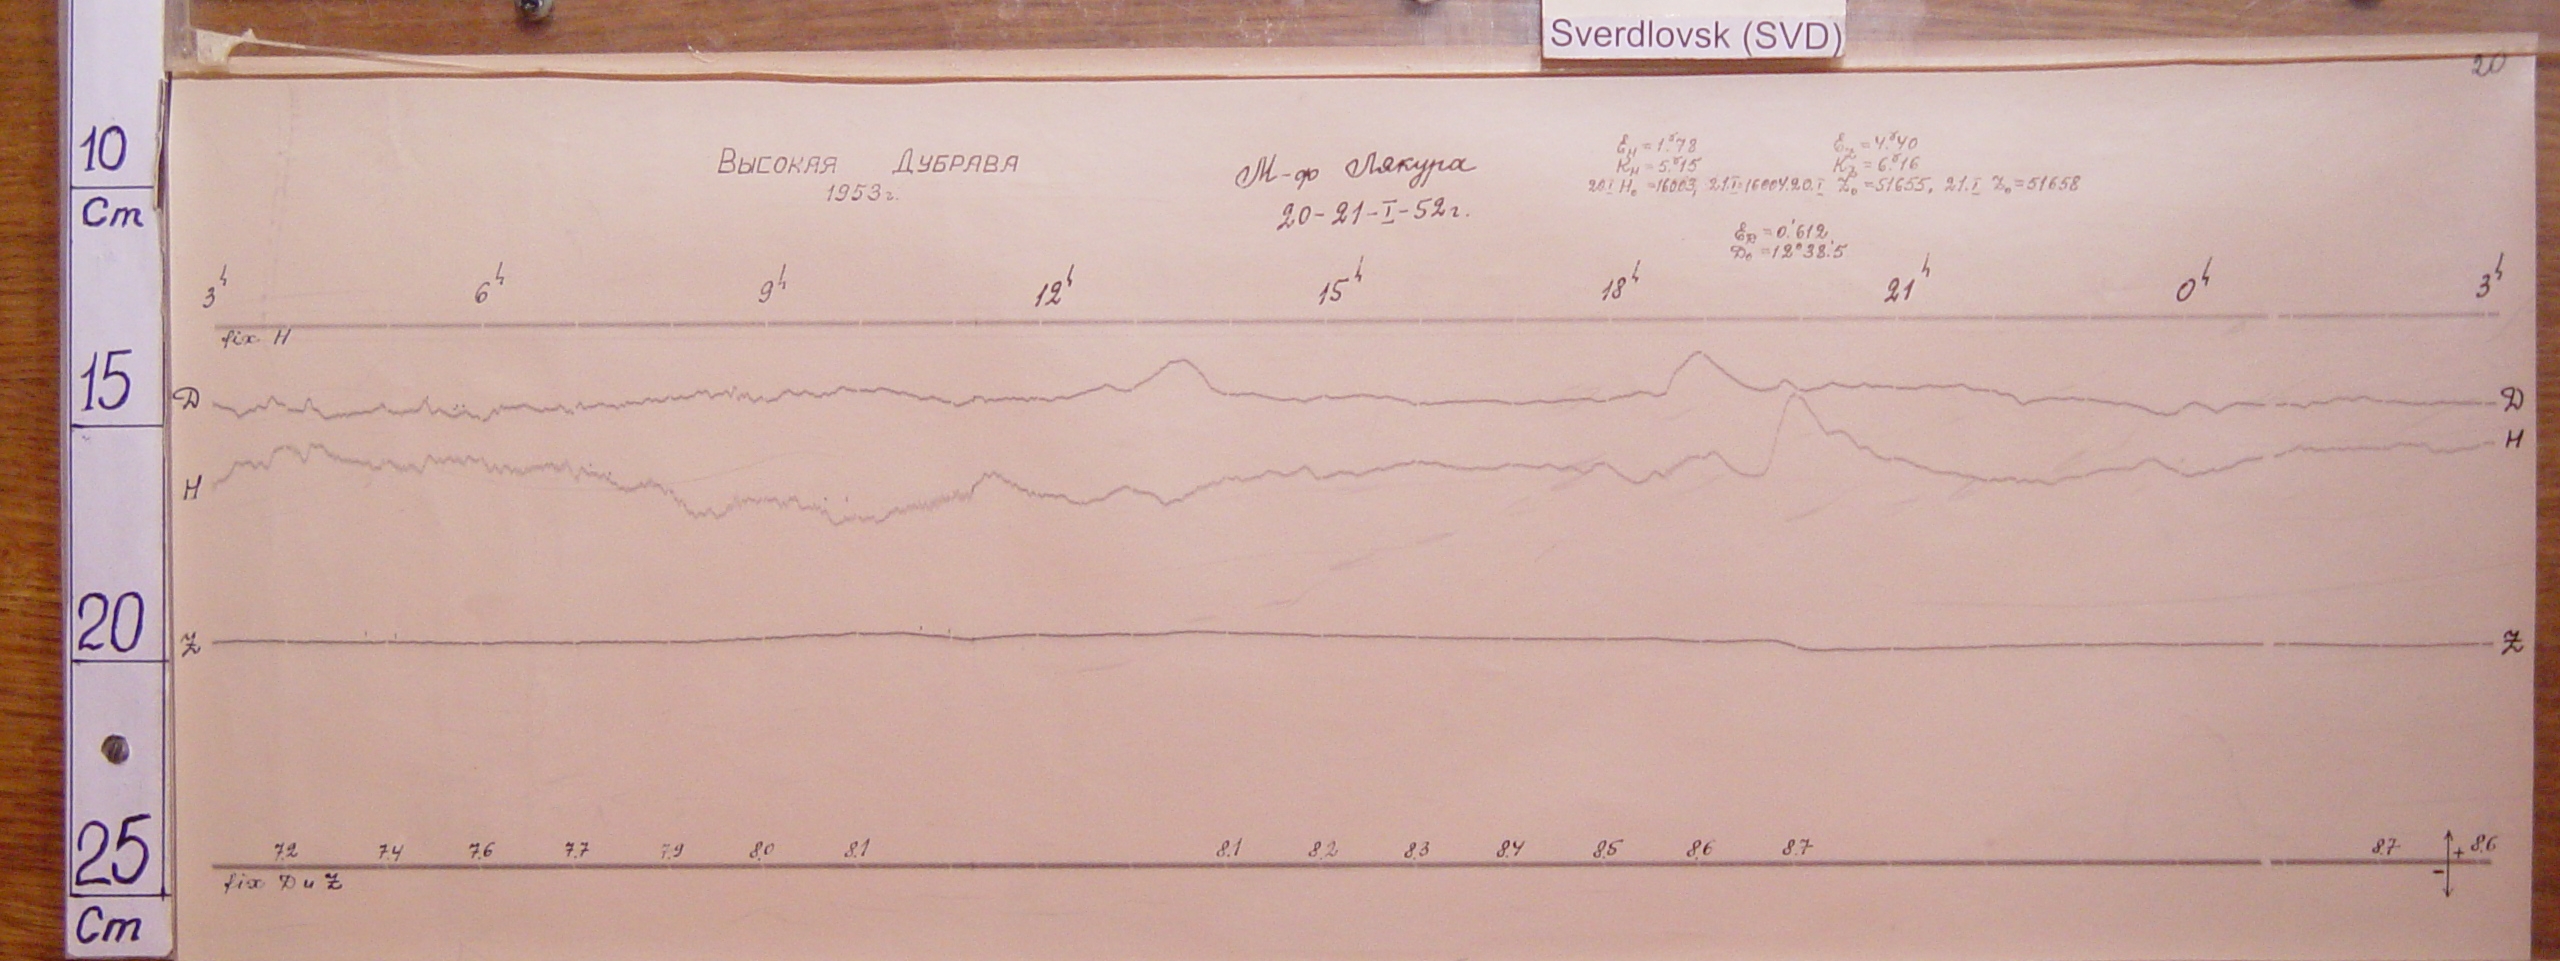 Sverdlovsk (SVD)
20
10
Cm
15
20
25
Cm
Высокая Дубрава
1953г.
М-ф Лякура
20-21-I-52г.
Ɛн = 1.ᵞ78
Kн = 5.ᵞ15
Ɛz = 4.ᵞ40
Kz = 6.ᵞ16
20.I H₀ = 16003, 21.I = 16004. 20.I Z₀ = 51655, 21.I Z₀ = 51658
ƐD = 0.'612
D₀ = 12°38.'5
3ʰ 6ʰ 9ʰ 12ʰ 15ʰ 18ʰ 21ʰ 0ʰ 3ʰ
fix H
D D
H H
Z Z
7.2 7.4 7.6 7.7 7.9 8.0 8.1 8.1 8.2 8.3 8.4 8.5 8.6 8.7 8.7 + 8.6
-
fix D и Z